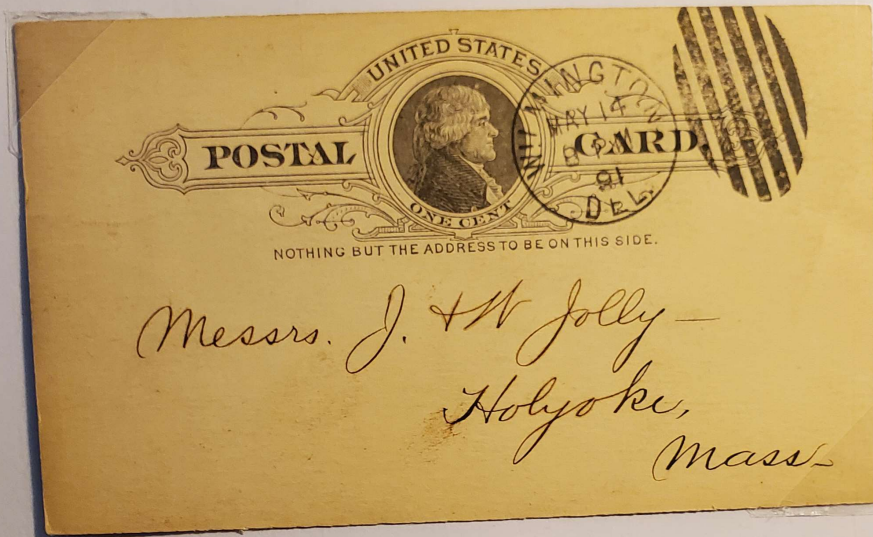 UNITED STATES
POSTAL CARD.
ONE CENT
WILMINGTON
MAY 14
8 PM
91
DEL.
NOTHING BUT THE ADDRESS TO BE ON THIS SIDE.
Messrs. J. & W Jolly—
Holyoke,
Mass—